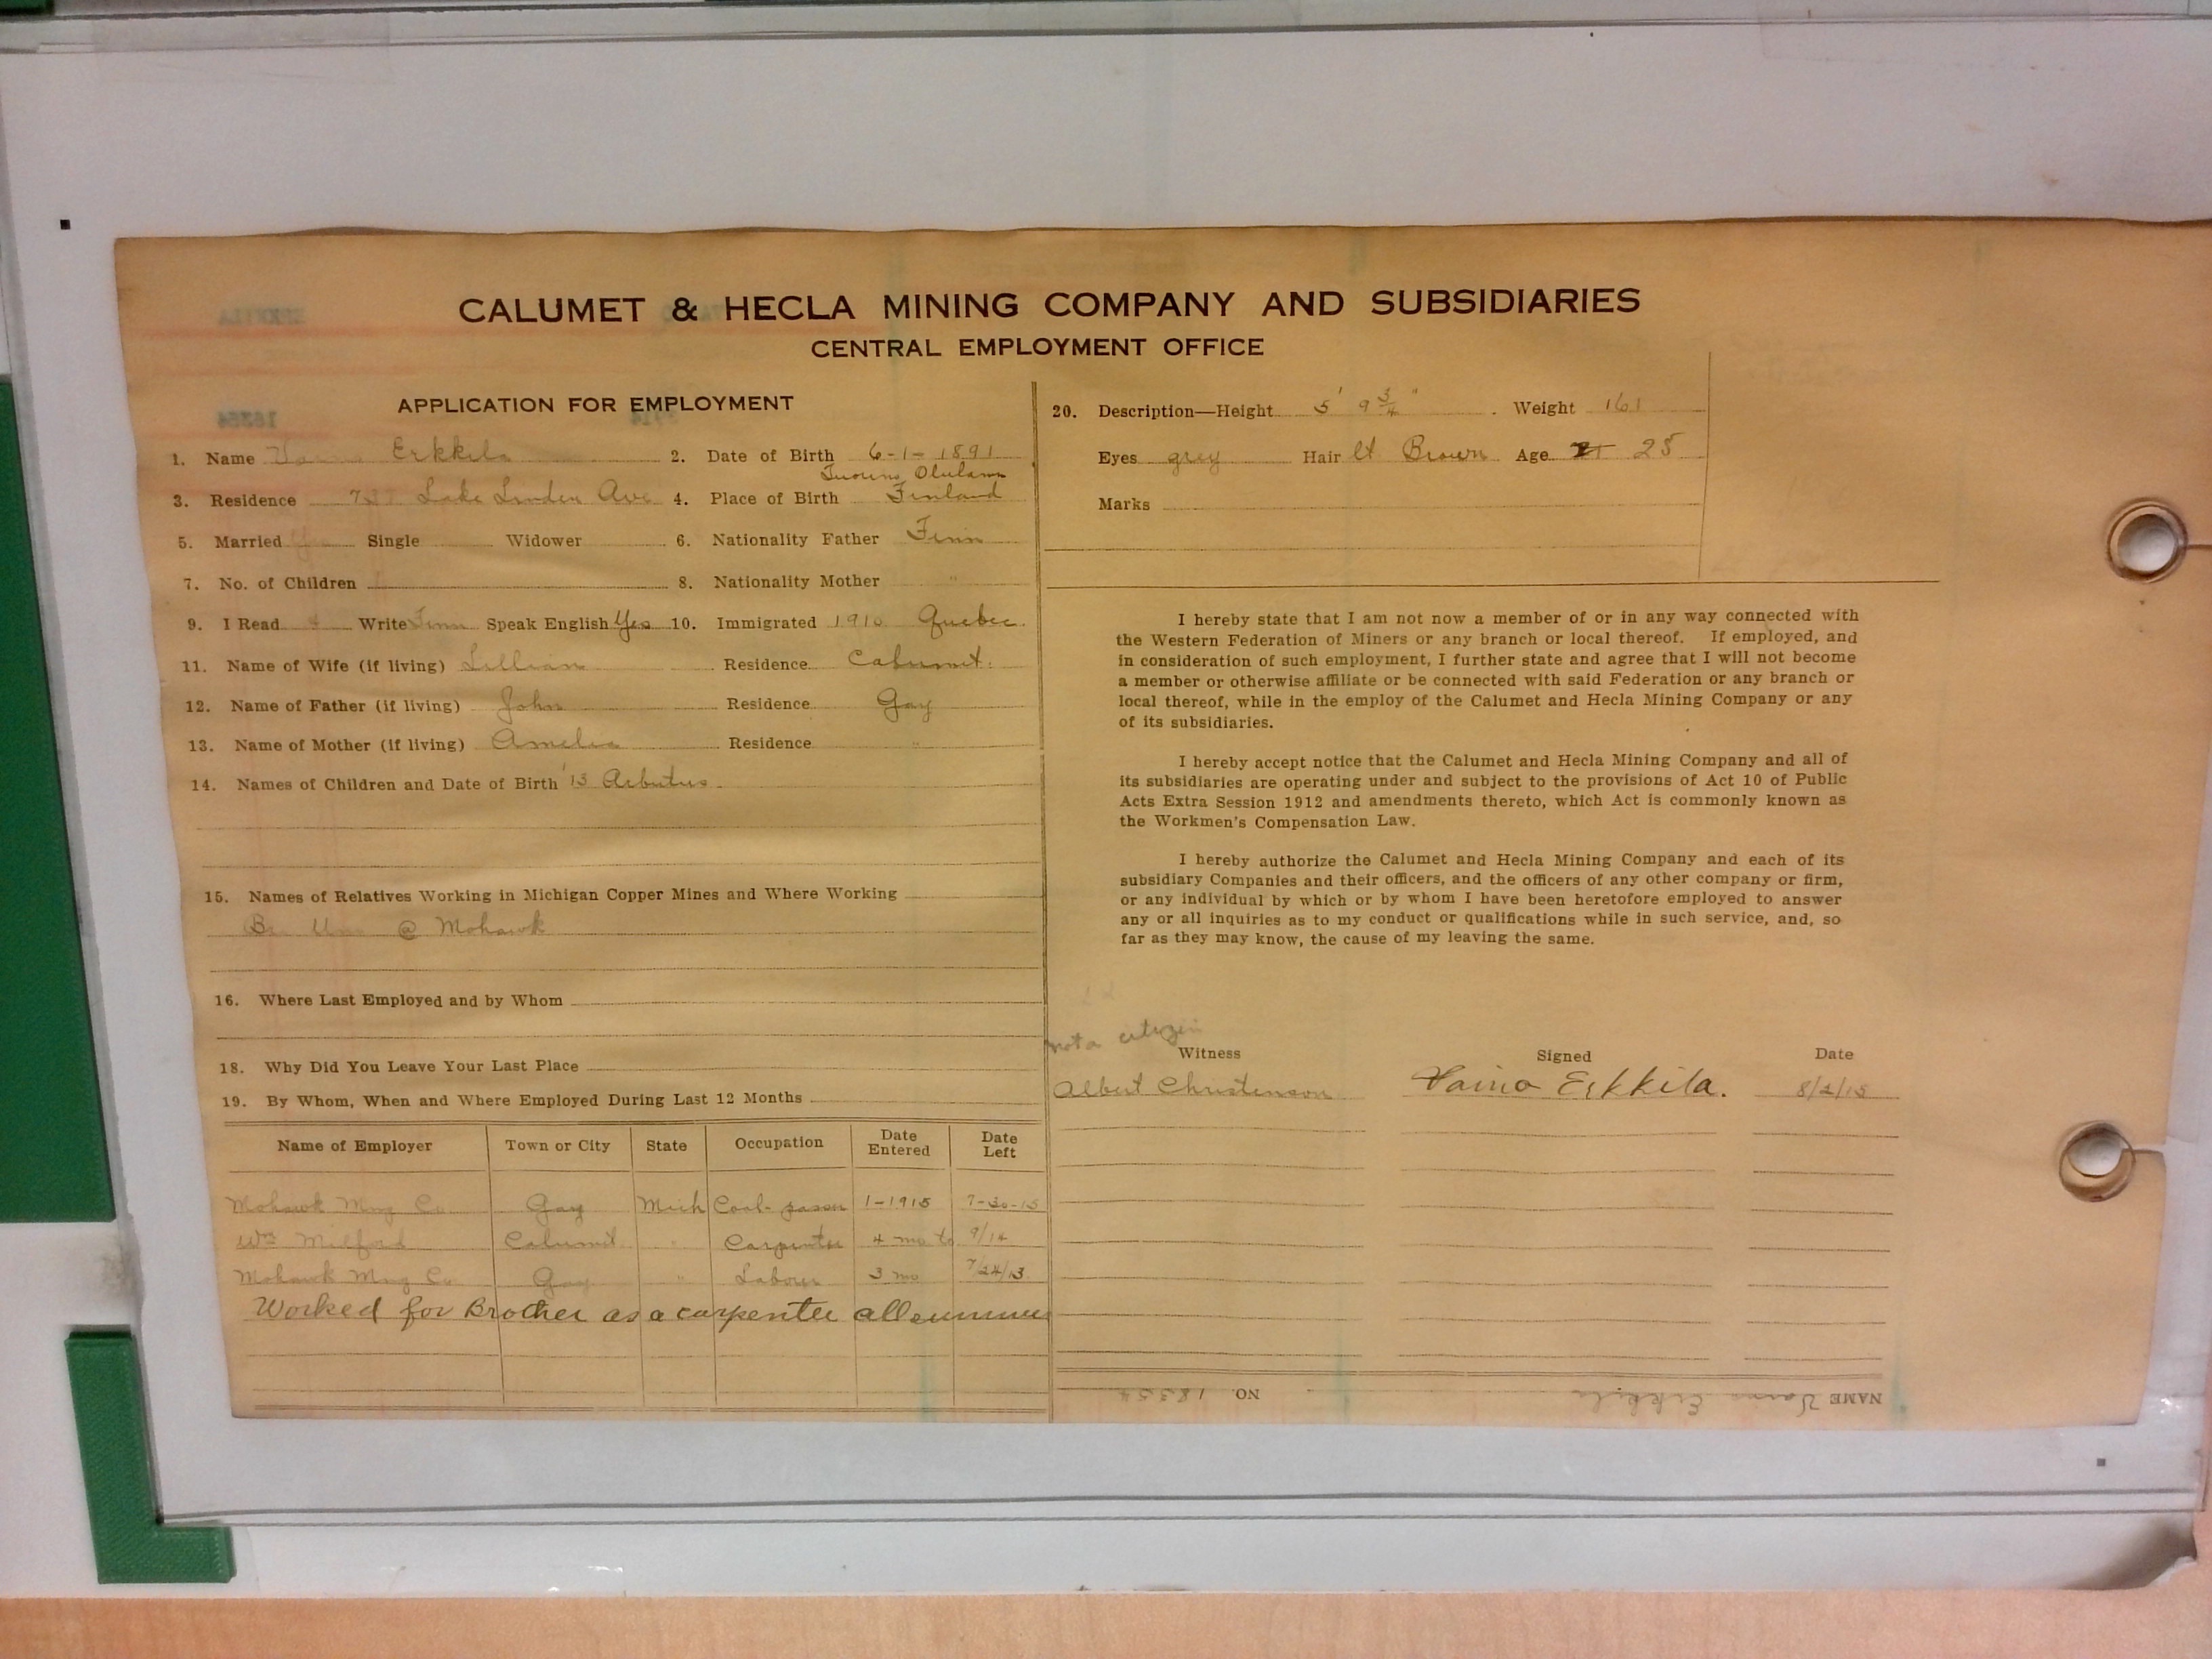 CALUMET & HECLA MINING COMPANY AND SUBSIDIARIES
CENTRAL EMPLOYMENT OFFICE
APPLICATION FOR EMPLOYMENT
1. Name Erkkila 2. Date of Birth 6-1-1891
3. Residence Lake Linden Ave 4. Place of Birth Finland
5. Married Single Widower 6. Nationality Father Finn
7. No. of Children 8. Nationality Mother "
9. I Read Write Finn Speak English Yes 10. Immigrated 1910 Quebec.
11. Name of Wife (if living) Lillian Residence Calumet.
12. Name of Father (if living) John Residence Gay
13. Name of Mother (if living) Amelia Residence "
14. Names of Children and Date of Birth '13 Arbutus.
15. Names of Relatives Working in Michigan Copper Mines and Where Working
@ Mohawk
16. Where Last Employed and by Whom
18. Why Did You Leave Your Last Place
19. By Whom, When and Where Employed During Last 12 Months
Name of Employer Town or City State Occupation Date Entered Date Left
Mohawk Mng Co Gay Mich Coal-passer 1-1915 7-30-15
Wm Milford Calumet " Carpenter 4 mo to 9/14
Mohawk Mng Co Gay " Laborer 3 mo 7/24/13
Worked for Brother as a carpenter all summer
20. Description—Height 5' 9 3/4" . Weight 161
Eyes grey Hair lt Brown Age 25
Marks
I hereby state that I am not now a member of or in any way connected with
the Western Federation of Miners or any branch or local thereof. If employed, and
in consideration of such employment, I further state and agree that I will not become
a member or otherwise affiliate or be connected with said Federation or any branch or
local thereof, while in the employ of the Calumet and Hecla Mining Company or any
of its subsidiaries.
I hereby accept notice that the Calumet and Hecla Mining Company and all of
its subsidiaries are operating under and subject to the provisions of Act 10 of Public
Acts Extra Session 1912 and amendments thereto, which Act is commonly known as
the Workmen's Compensation Law.
I hereby authorize the Calumet and Hecla Mining Company and each of its
subsidiary Companies and their officers, and the officers of any other company or firm,
or any individual by which or by whom I have been heretofore employed to answer
any or all inquiries as to my conduct or qualifications while in such service, and, so
far as they may know, the cause of my leaving the same.
not a citizen
Witness Signed Date
Albert Christenson Vaino Erkkila. 8/2/15
NAME Vaino Erkkila NO. 18354